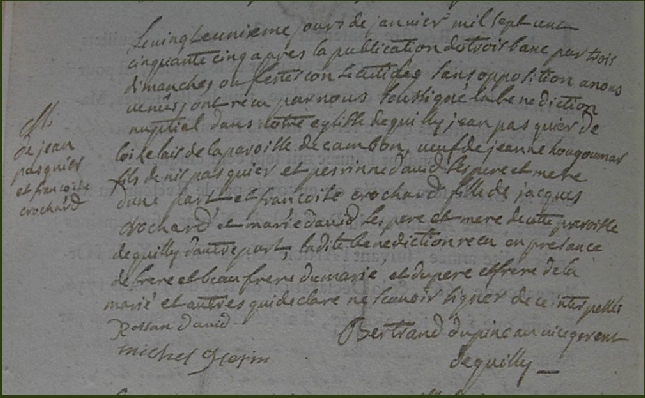 Le vingt eunixeme jour de janvier mil sept cent
cinquante cinq apres la publication de trois banc par trois
dimanches ou festes consecutif sans opposition a nous
venües ont recu par nous soussigné la benediction
nuptial dans notre eglise de quilly jean pasquier de
de la paroisse de cambon, veuf de jeanne
fils de pasquier et perrinne david ses pere et mere
d'une part et francoise crochard fille de jacques
crochard et marie david ses pere et mere de cette paroisse
de quilly d'autre part, ladite benediction recu en presance
de frere et beau frere du marie et du pere et frere de la
marié et autres qui declare ne scavoir signer de ce interpellés
M.
de jean
pasquier
et francoise
crochard
david
michel
Bertrand vicegerent
de quilly